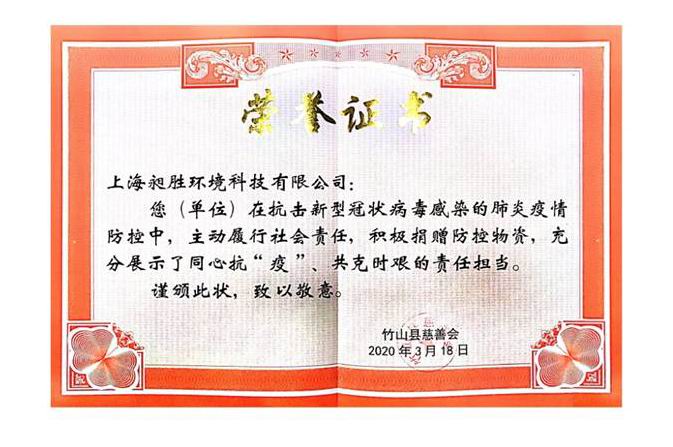 荣誉证书
上海昶胜环境科技有限公司：
您（单位）在抗击新型冠状病毒感染的肺炎疫情
防控中，主动履行社会责任，积极捐赠防控物资，充
分展示了同心抗“疫”、共克时艰的责任担当。
谨颁此状，致以敬意。
竹山县慈善会
2020 年 3 月 18 日